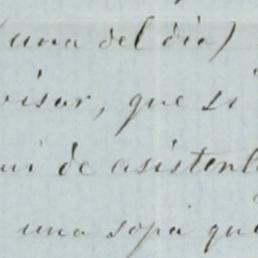 (una del dia)
visar, que si
ui de asistenl
una sopa que